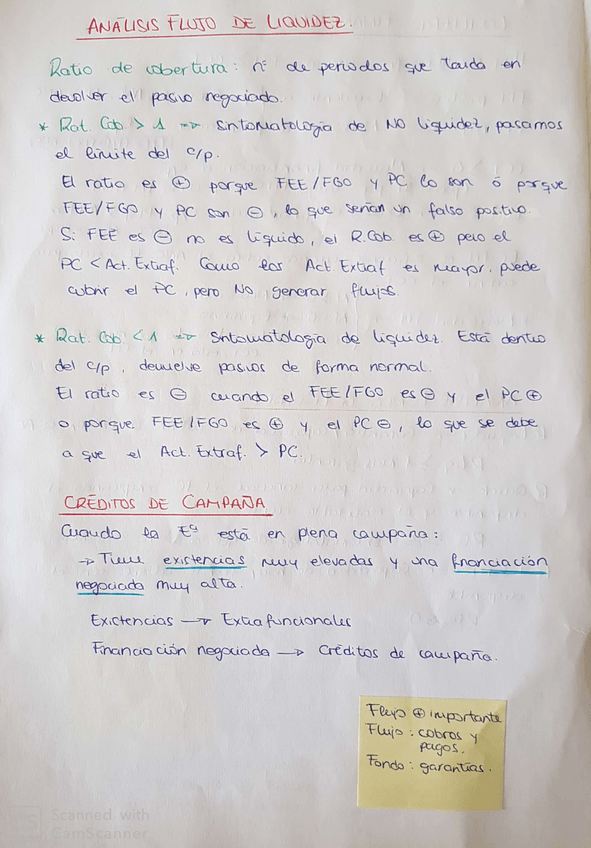 ANÁLISIS FLUJO DE LIQUIDEZ.
Ratio de cobertura: nº de periodos que tarda en
devolver el pasivo negociado.
* Rat. Cob > 1 => Sintomatología de NO liquidez, pasamos
el límite del c/p.
El ratio es ⊕ porque FEE/FGO y PC lo son ó porque
FEE/FGO y PC son ⊖, lo que serían un falso positivo.
Si FEE es ⊖ no es líquido, el R.Cob es ⊕ pero el
PC < Act. Extraf. Como los Act. Extraf es mayor, puede
cubrir el PC, pero NO generar flujos.
* Rat. Cob < 1 => Sintomatología de liquidez. Está dentro
del c/p, devuelve pasivos de forma normal.
El ratio es ⊖ cuando el FEE/FGO es ⊖ y el PC ⊕
o porque FEE/FGO es ⊕ y el PC ⊖, lo que se debe
a que el Act. Extraf. > PC.
CRÉDITOS DE CAMPAÑA
Cuando la Eª está en plena campaña:
→ Tiene existencias muy elevadas y una financiación
negociada muy alta.
Existencias → Extrafuncionales
Financiación negociada → Créditos de campaña.
Flujo ⊕ importante
Flujo: cobros y
pagos.
Fondo: garantías.
Scanned with
CamScanner